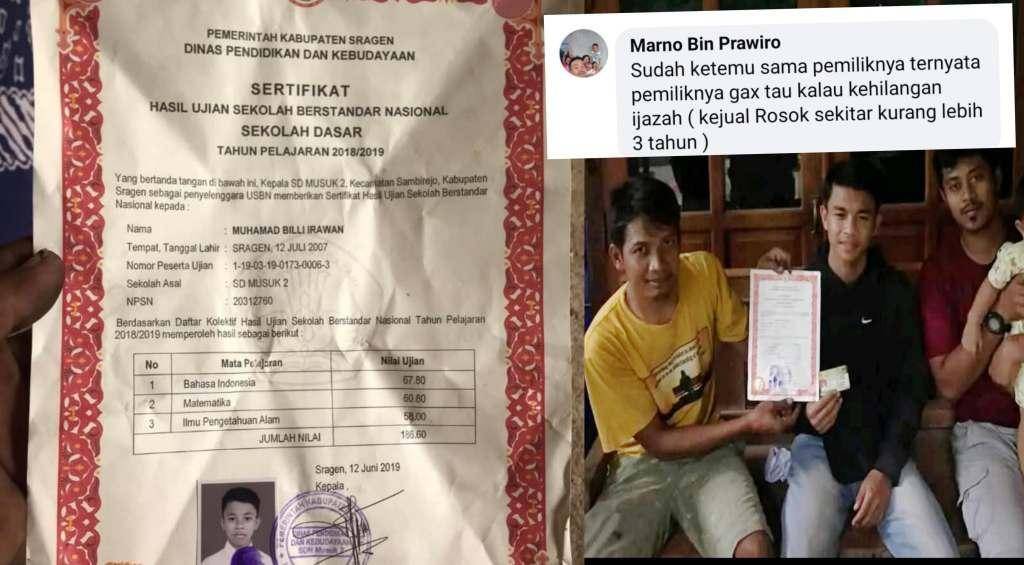 PEMERINTAH KABUPATEN SRAGEN
DINAS PENDIDIKAN DAN KEBUDAYAAN
SERTIFIKAT
HASIL UJIAN SEKOLAH BERSTANDAR NASIONAL
SEKOLAH DASAR
TAHUN PELAJARAN 2018/2019
Yang bertanda tangan di bawah ini, Kepala SD MUSUK 2, Kecamatan Sambirejo, Kabupaten
Sragen sebagai penyelenggara USBN memberikan Sertifikat Hasil Ujian Sekolah Berstandar
Nasional kepada :
Nama : MUHAMAD BILLI IRAWAN
Tempat, Tanggal Lahir : SRAGEN, 12 JULI 2007
Nomor Peserta Ujian : 1-19-03-19-0173-0006-3
Sekolah Asal : SD MUSUK 2
NPSN : 20312760
Berdasarkan Daftar Kolektif Hasil Ujian Sekolah Berstandar Nasional Tahun Pelajaran
2018/2019 memperoleh hasil sebagai berikut :
No Mata Pelajaran Nilai Ujian
1 Bahasa Indonesia 67.80
2 Matematika 60.80
3 Ilmu Pengetahuan Alam 58.00
JUMLAH NILAI 186.60
Sragen, 12 Juni 2019
Kepala ,
PEMERINTAH KABUPATEN
DINAS PENDIDIKAN
DAN KEBUDAYAAN
SDN Musuk 2
Marno Bin Prawiro
Sudah ketemu sama pemiliknya ternyata
pemiliknya gax tau kalau kehilangan
ijazah ( kejual Rosok sekitar kurang lebih
3 tahun )